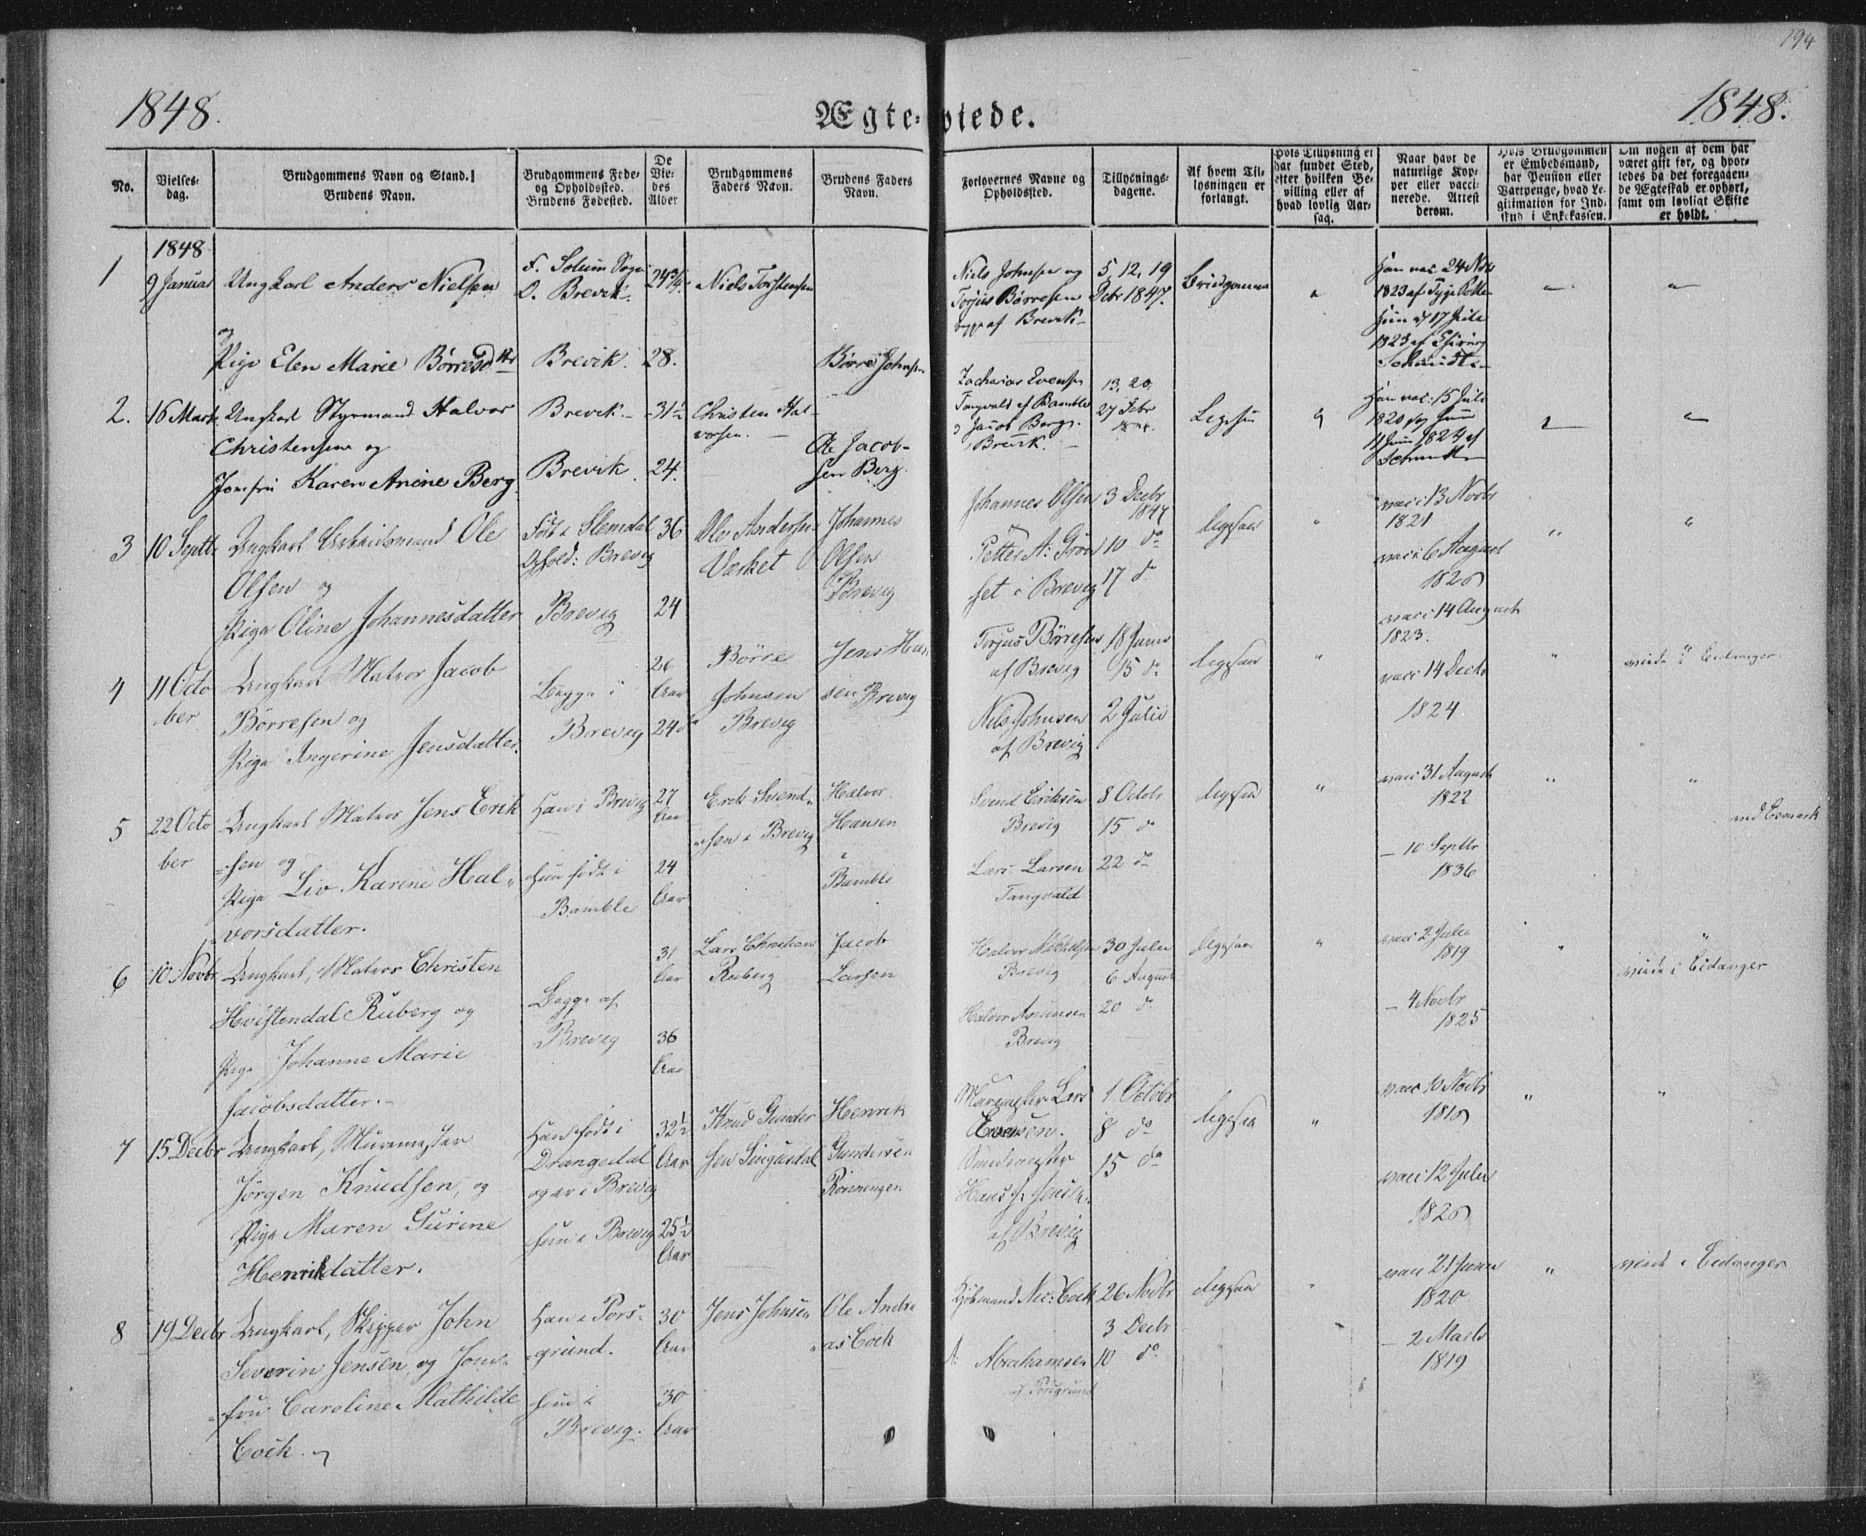 194
1848.
Ægte-viede.
1848.
No.
Vielses-
dag.
Brudgommens Navn og Stand.
Brudens Navn.
Brudgommens Føde-
og Opholdsted.
Brudens Fødested.
De
Vie-
des
Alder
Brudgommens
Faders Navn.
Brudens Faders
Navn.
Forlovernes Navne og
Opholdssted.
Tillysnings-
dagene.
Af hvem Til-
lysningen er
forlangt.
Hvis Tillysning ei
har fundet Sted,
efter hvilken Be-
villing eller af
hvad lovlig Aar-
sag.
Naar havt de
naturlige Kop-
per eller vacci-
nerede. Attest
derom.
Hvis Brudgommen
er Embedsmand,
har Pension eller
Vartpenge, hvad Le-
gitimation for Ind-
skud i Enkekassen.
Om nogen af dem har
været gift før, og hvor-
ledes da det foregaaen-
de Ægteskab er ophørt,
samt om lovligt Skifte
er holdt.
1848
1
9 Januar
Ungkarl Anders Nielsen
F. Solum Sogn
O. Brevik.
24 3/4
Niels Torstensen
Niels Johnsen og
Torjus Børresen
begge af Brevik
5, 12, 19
Decbr 1847.
Brudgommen
"
Han vac. 24 Nov
1823 af
Hun 17 Juli
1823 af
Schmidt
og
Pige Elen Marie Børresdtr
Brevik.
28.
Børre Johnsen
2.
16 Marts
Ungkarl Styrmand Halvor
Christensen og
Jomfru Karen Anine Berg.
Brevik
Brevik
31 1/2
24.
Christen Hal-
vorsen.
Ole Jacob-
sen Berg.
Zacharias Evensen
Tangvald af Bamble
Jacob Berg.
Brevik.
13, 20,
27 Febr
Ligesaa
"
Han vac. 15 Juli
1820
11 Juni 1824 af
Schmidt
3
10 Septbr
Ungkarl Arbeidsmand Ole
Olsen og
Pige Oline Johannesdatter
Født i Slemdal
Ophold: Brevig
Brevig
36
24
Ole Andersen
Værket
Johannes
Olsen
Brevig
Johannes Olsen
Petter A: Grøn
set i Brevig
3 Decbr
1847
10 do
17 do
ligesaa
"
vacc 13 Novbr
1821
vacc 6 August
1826
"
"
4
11 Octo
ber
Ungkarl Matros Jacob
Børresen og
Pige Ingerine Jensdatter.
Begge i
Brevig
26
Aar
24
Børre
Johnsen
Brevig
Jens Han
sen Brevig
Torjus Børresen
af Brevig
Niels Johnsen
af Brevig
18 Juni
15 do
2 Julii
ligesaa
"
vacc 14 August
1823.
vacc 14 Decbr
1824
"
viede i Eidanger.
5
22 Octo
ber
Ungkarl Matros Jens Erik
sen og
Pige Liv Karine Hal-
vorsdatter.
Han i Brevig
Hun født i
Bamble
27
Aar
24
Aar
Erik Svend-
sen i Brevig
Halvor
Hansen
i
Bamble
Svend Eriksen
Brevig
Lars Larsen
Tangvald
8 Octobr
15 do
22 do
ligesaa
"
vacc 31 August
1822
– 10 Septbr
1836
"
"
6
10 Novbr
Ungkarl, Matros Christen
Hvistendal Ruberg og
Pige Johanne Marie
Jacobsdatter.
Begge af
Brevig
31
Aar
36
Aar
Lars Christian
Ruberg
Jacob
Larsen
Halvor Nicholsen
Brevig
Halvor
Brevig
30 Julii
6 August
20 do
ligesaa
"
vacc 2 Julii
1819
– 4 Novbr
1825
"
viede i Eidanger
7
15 Decbr
Ungkarl, Muremester
Jørgen Knudsen, og
Pige Maren Gurine
Henrikdatter.
Han født i
Drangedal
og er i Brevig
Hun i Brevig
32 1/2
Aar
25 1/2
Aar
Knud Gunder
sen
Henrik
Gundersen
Muremester Lars
Evensen.
Hans J. Jensen
af Brevig
1 Octobr
8 do
15 do
ligesaa
"
vacc 10 Novbr
1816
vacc 12 Julii
1826
"
"
8
19 Decbr
Ungkarl, Skipper John
Severin Jensen, og Jom-
fru Caroline Mathilde
Cock.
Han i Pors-
grund.
Hun i
Brevig.
30
Aar
30
Aar
Jens Johnsen
Ole Andre
as Cock
Kjøbmand Nic: Cock
A: Abrahamsen
af Porsgrund
26 Novbr
3 Decbr
10 do
ligesaa
"
vacc 21 Juni
1820
– 2 Marts
1819
"
viede i Eidanger